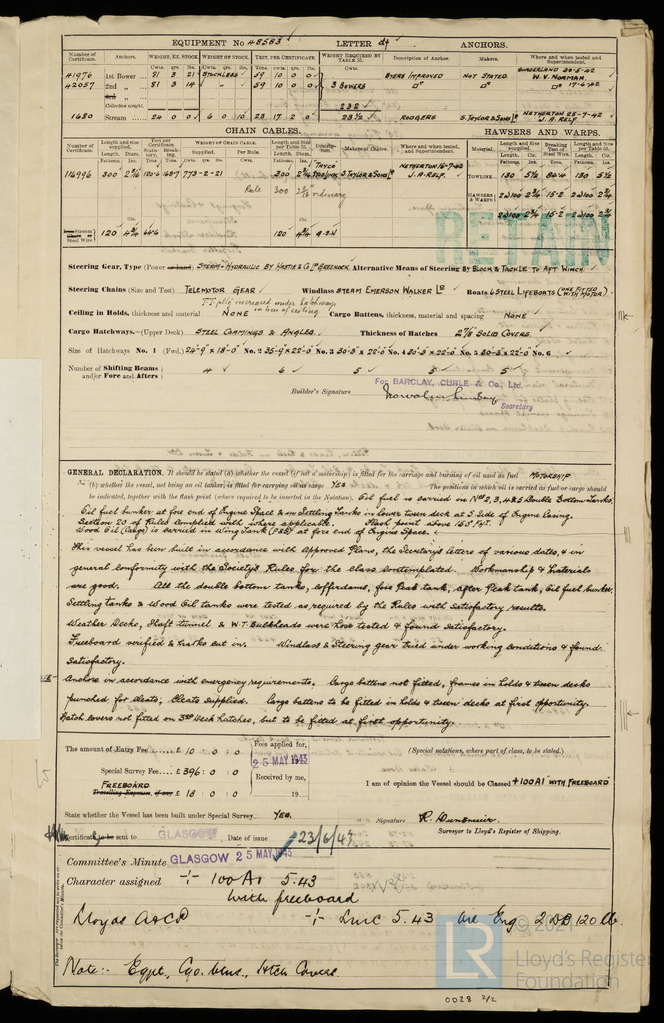 EQUIPMENT No 48583 LETTER d† ANCHORS.
Number of Certificate. Anchors. WEIGHT, EX. STOCK WEIGHT OF STOCK. TEST, PER CERTIFICATE. WEIGHT REQUIRED BY TABLE 53. Description of Anchor. Makers. Where and when tested and Superintendent.
41976 1st Bower 81 3 21 STOCKLESS 59 10 0 0 BYERS IMPROVED NOT STATED. SUNDERLAND 30-5-42 W. V. NORMAN.
42057 2nd „ 81 3 14 59 10 0 0 3 BOWERS Do Do 17-6-42
3rd „
Collective weight. 232
1680 Stream 24 0 0 6 0 10 23 17 2 0 23½ RODGERS S. TAYLOR & SONS Ld NETHERTON 25-7-42 J. A. RELF.
CHAIN CABLES. HAWSERS AND WARPS.
116996 300 773-2-21 300 TAYCO S. TAYLOR & SONS Ld NETHERTON 16-7-42 J. A. RELF. TOWLINE 130 5½ 130 5½
Rule 300 ordinary HAWSERS & WARPS 2@100 2¾ 15.2 2@100 2¾
2@100 2¾ 15.2 2@100 2¾
Steel Wire 120 4¾ 120 4¾
RETAIN
Steering Gear, Type (Power or hand) STEAM-HYDRAULIC BY HASTIE & Co Ld GREENOCK. Alternative Means of Steering BY BLOCK & TACKLE TO AFT WINCH
Steering Chains (Size and Test) TELEMOTOR GEAR Windlass STEAM EMERSON WALKER Ld Boats 4 STEEL LIFEBOATS (ONE FITTED WITH MOTOR)
T.T. pltg increased under hatchways in lieu of ceiling
Ceiling in Holds, thickness and material NONE Cargo Battens, thickness, material and spacing NONE
Cargo Hatchways. (Upper Deck) STEEL COAMINGS & ANGLES. Thickness of Hatches 2⅞ SOLID COVERS.
Size of Hatchways No. 1 (Fwd.) 24'-9" x 18'-0" No. 2 35'-9" x 22'-0" No. 3 30'-3" x 22'-0" No. 4 30'-3" x 22'-0" No. 5 30'-3" x 22'-0" No. 6
Number of Shifting Beams and/or Fore and Afters 4 6 5 5 5
For BARCLAY, CURLE & Co., Ltd.
Builder's Signature Norval Lindsay
Secretary
GENERAL DECLARATION. It should be stated (a) whether the vessel (if not a motorship) is fitted for the carriage and burning of oil used as fuel MOTORSHIP
(b) whether the vessel, not being an oil tanker, is fitted for carrying oil as cargo YES The positions in which oil is carried as fuel or cargo should
be indicated, together with the flash point (where required to be inserted in the Notation). Oil fuel is carried in Nos 2, 3, 4 & 5 Double Bottom Tanks.
Oil fuel bunker at fore end of Engine Space & in Settling Tanks in lower tween deck at S. Side of Engine Casing.
Section 20 of Rules complied with where applicable. Flash point above 150° Fht.
Wood Oil (Cargo) is carried in Wing Tank (P&S) at fore end of Engine Space.
This vessel has been built in accordance with Approved Plans, the Secretary's letters of various dates, & in
general conformity with the Society's Rules for the class contemplated. Workmanship & materials
are good. All the double bottom tanks, cofferdams, fore Peak tank, after Peak tank, Oil fuel bunker,
Settling tanks & Wood Oil tanks were tested as required by the Rules with satisfactory results.
Weather Decks, Shaft tunnel & W.T. Bulkheads were hose tested & found satisfactory.
Freeboard verified & marks cut in. Windlass & Steering gear tried under working conditions & found
Satisfactory.
Anchors in accordance with emergency requirements. Cargo battens not fitted, frames in holds & tween decks
punched for cleats, cleats supplied. Cargo battens to be fitted in holds & tween decks at first opportunity.
Hatch covers not fitted on 3rd Deck hatches, but to be fitted at first opportunity.
The amount of Entry Fee £ 10 : 0 : 0 Fees applied for, 25 MAY 1943 (Special notations, where part of class, to be stated.)
Special Survey Fee £ 396 : 0 : 0 Received by me, I am of opinion the Vessel should be Classed +100A1 "WITH FREEBOARD"
FREEBOARD
Travelling Expenses, if any £ 18 : 0 : 0 19
State whether the Vessel has been built under Special Survey YES. Signature R. Dunsmuir
Surveyor to Lloyd's Register of Shipping.
Certificate to be sent to GLASGOW Date of issue 23/6/43
Committee's Minute GLASGOW 25 MAY 1943
Character assigned + 100A1 5.43
with freeboard
Lloyds A&CP + LMC 5.43 Oil Eng 2 DB 120 lb.
Note:- Eqpt., Cgo. btns., Htch Covers.
LR
© 2021
Lloyd's Register
Foundation
0028 2/2